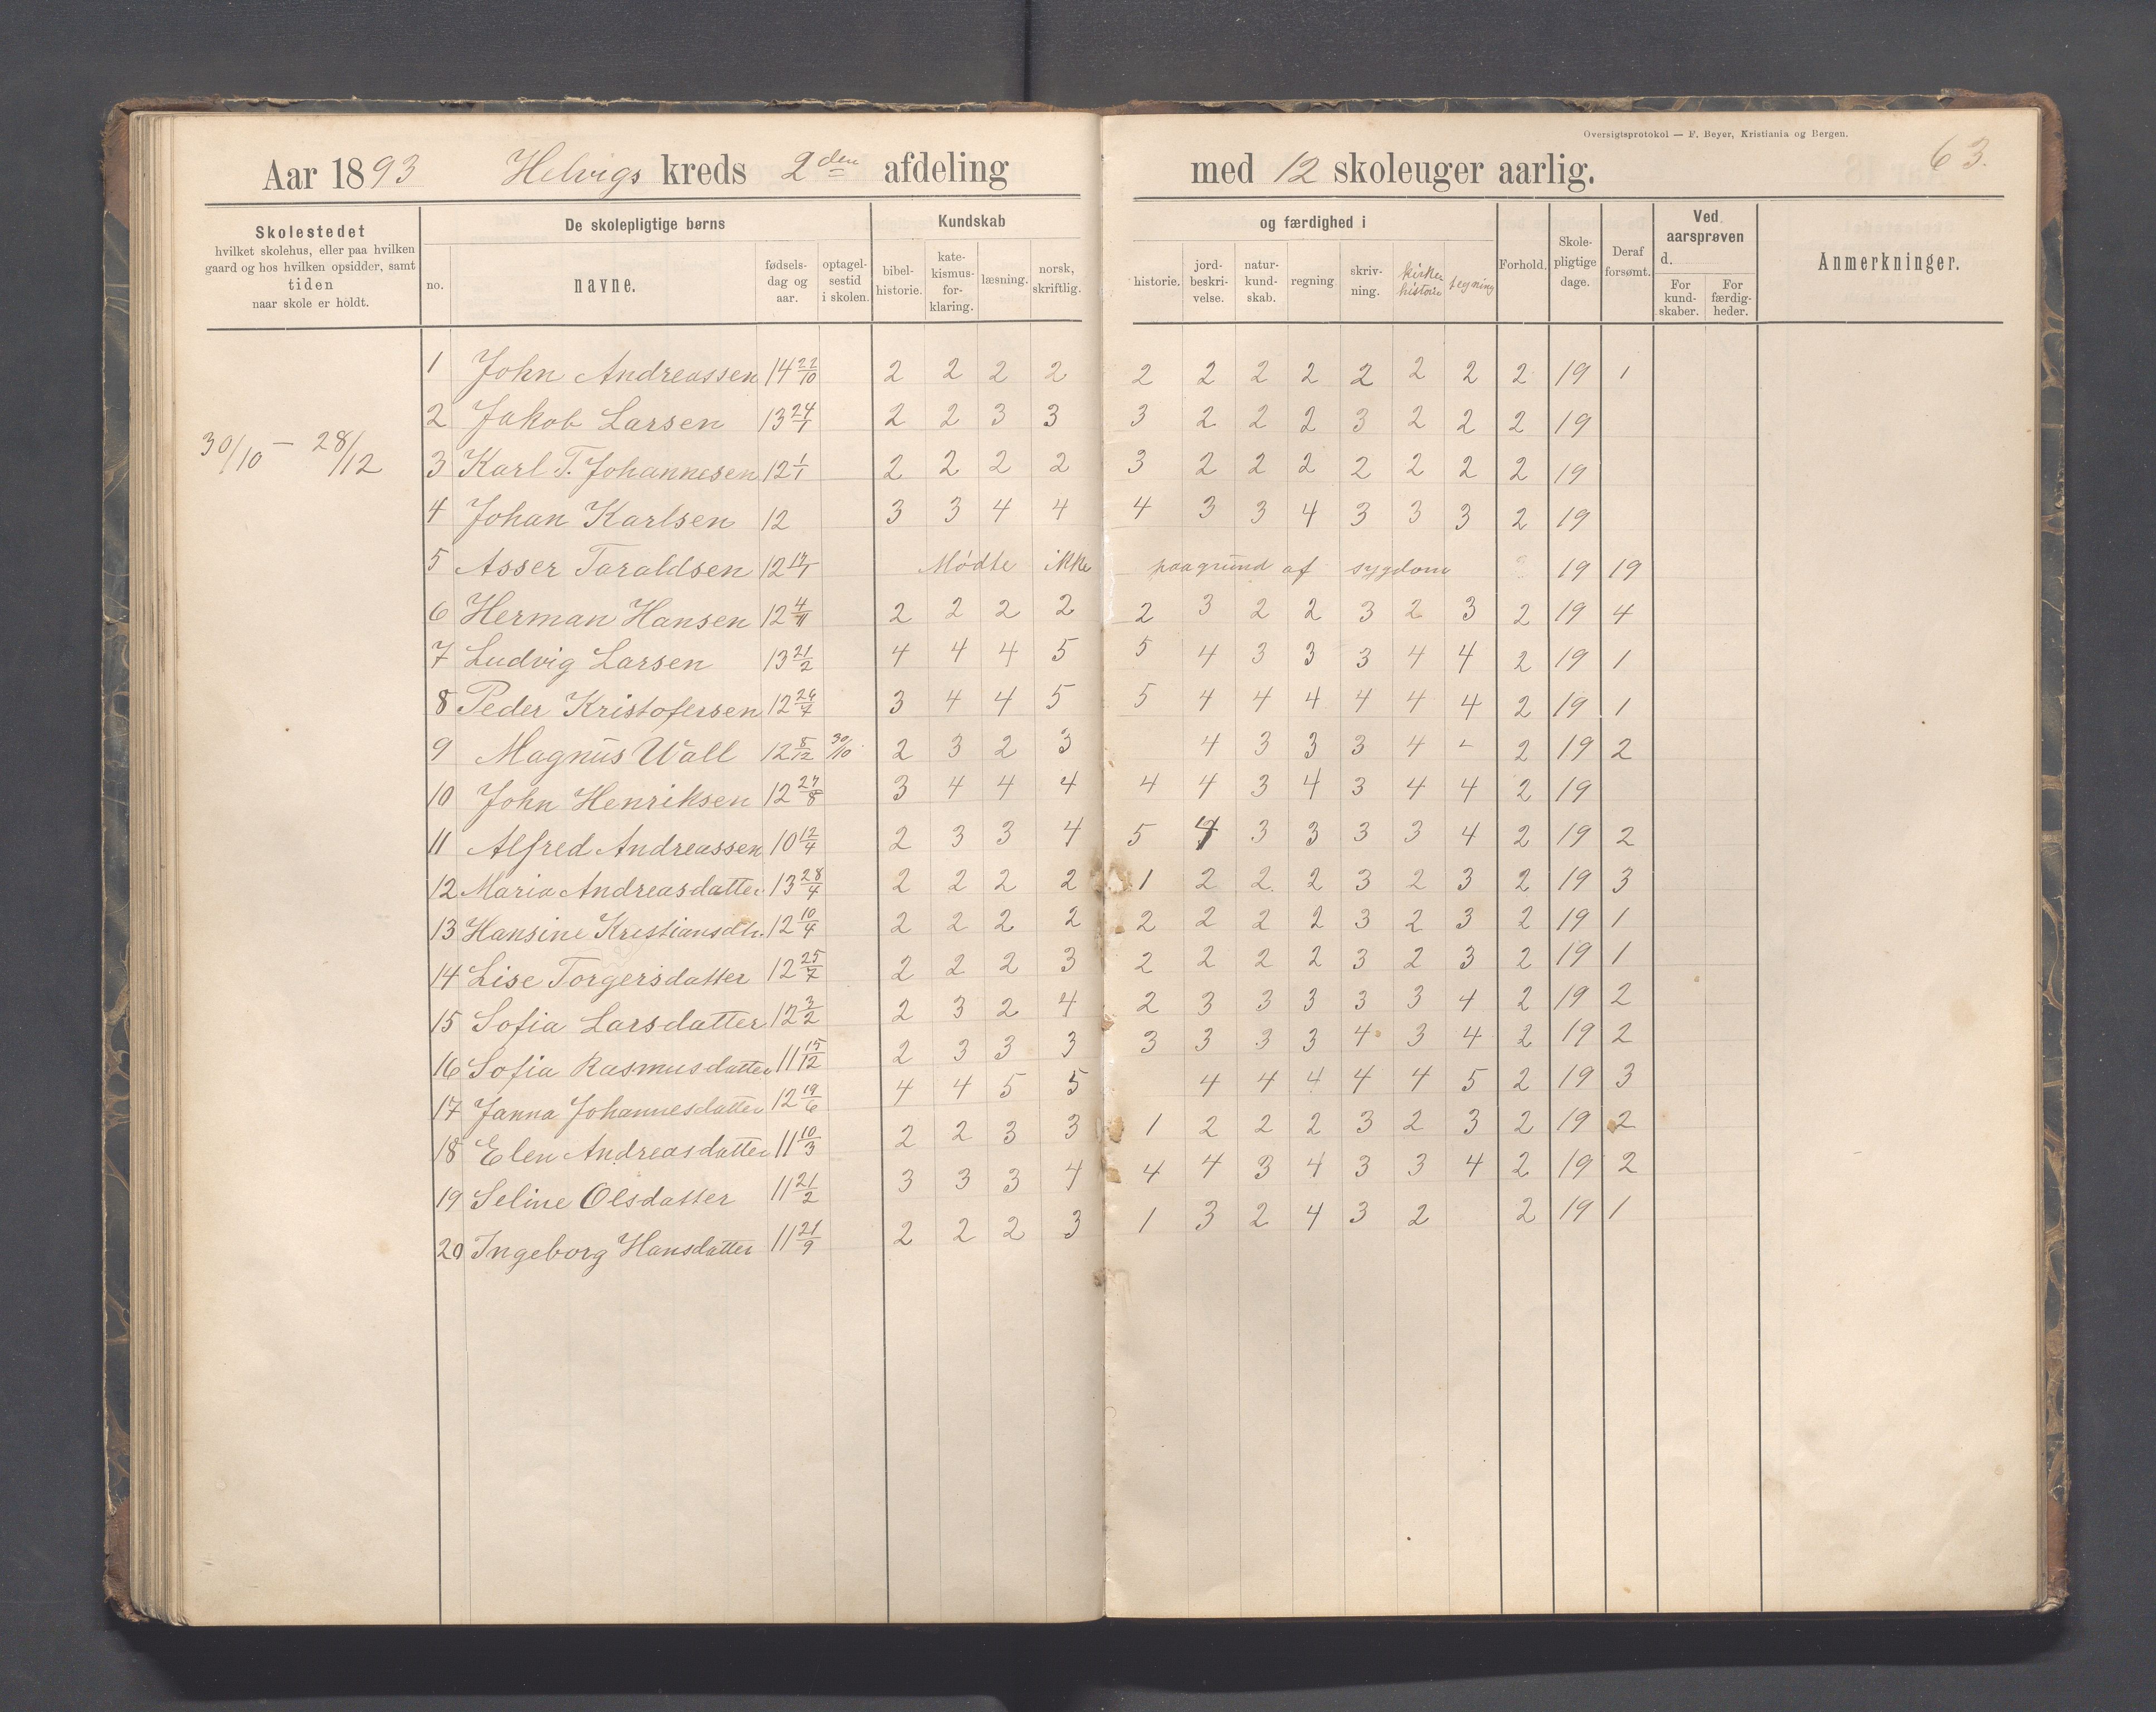 Oversigtsprotokol — F. Beyer, Kristiania og Bergen.
63.
Aar 1893 Helvigs kreds 2den afdeling med 12 skoleuger aarlig.
Skolestedet hvilket skolehus, eller paa hvilken gaard og hos hvilken opsidder, samt tiden naar skole er holdt.
De skolepligtige børns
no. navne. fødsels-dag og aar. optagel-sestid i skolen.
Kundskab og færdighed i
bibel-historie. kate-kismus-for-klaring. læsning. norsk, skriftlig. historie. jord-beskri-velse. natur-kund-skab. regning skriv-ning. kirke historie tegning
Forhold. Skole-pligtige dage. Deraf forsømt.
Ved aarsprøven d.
For kund-skaber. For færdig-heder.
Anmerkninger.
30/10 — 28/12
1 John Andreassen 14 22/10 2 2 2 2 2 2 2 2 2 2 2 2 19 1
2 Jakob Larsen 13 24/1 2 2 3 3 3 2 2 2 3 2 2 2 19
3 Karl T. Johannesen 12 1/1 2 2 2 2 3 2 2 2 2 2 2 2 19
4 Johan Karlsen 12 3 3 4 4 4 3 3 4 3 3 3 2 19
5 Asser Taraldsen 12 17/1 Mødte ikke paagrund af sygdom 19 19
6 Herman Hansen 12 4/11 2 2 2 2 2 3 2 2 3 2 3 2 19 4
7 Ludvig Larsen 13 21/2 4 4 4 5 5 4 3 3 3 4 4 2 19 1
8 Peder Kristofersen 12 29/4 3 4 4 5 5 4 4 4 4 4 4 2 19 1
9 Magnus Wall 12 8/12 30/10 2 3 2 3 4 3 3 3 4 - 2 19 2
10 John Henriksen 12 27/8 3 4 4 4 4 4 3 4 3 4 4 2 19
11 Alfred Andreassen 10 12/4 2 3 3 4 5 4 3 3 3 3 4 2 19 2
12 Maria Andreasdatter 13 28/4 2 2 2 2 1 2 2 2 3 2 3 2 19 3
13 Hansine Kristiansdtr. 12 10/4 2 2 2 2 2 2 2 2 3 2 3 2 19 1
14 Lise Torgersdatter 12 25/7 2 2 2 3 2 2 2 2 3 2 3 2 19 1
15 Sofia Larsdatter 12 3/2 2 3 2 4 2 3 3 3 3 3 4 2 19 2
16 Sofia Rasmusdatter 11 15/12 2 3 3 3 3 3 3 3 4 3 4 2 19 2
17 Janna Johannesdatter 12 19/6 4 4 5 5 4 4 4 4 4 5 2 19 3
18 Elen Andreasdatter 11 10/3 2 2 3 3 1 2 2 2 3 2 3 2 19 2
19 Seline Olsdatter 11 21/2 3 3 3 4 4 4 3 4 3 3 4 2 19 2
20 Ingeborg Hansdatter 11 21/9 2 2 2 3 1 3 2 4 3 2 2 19 1